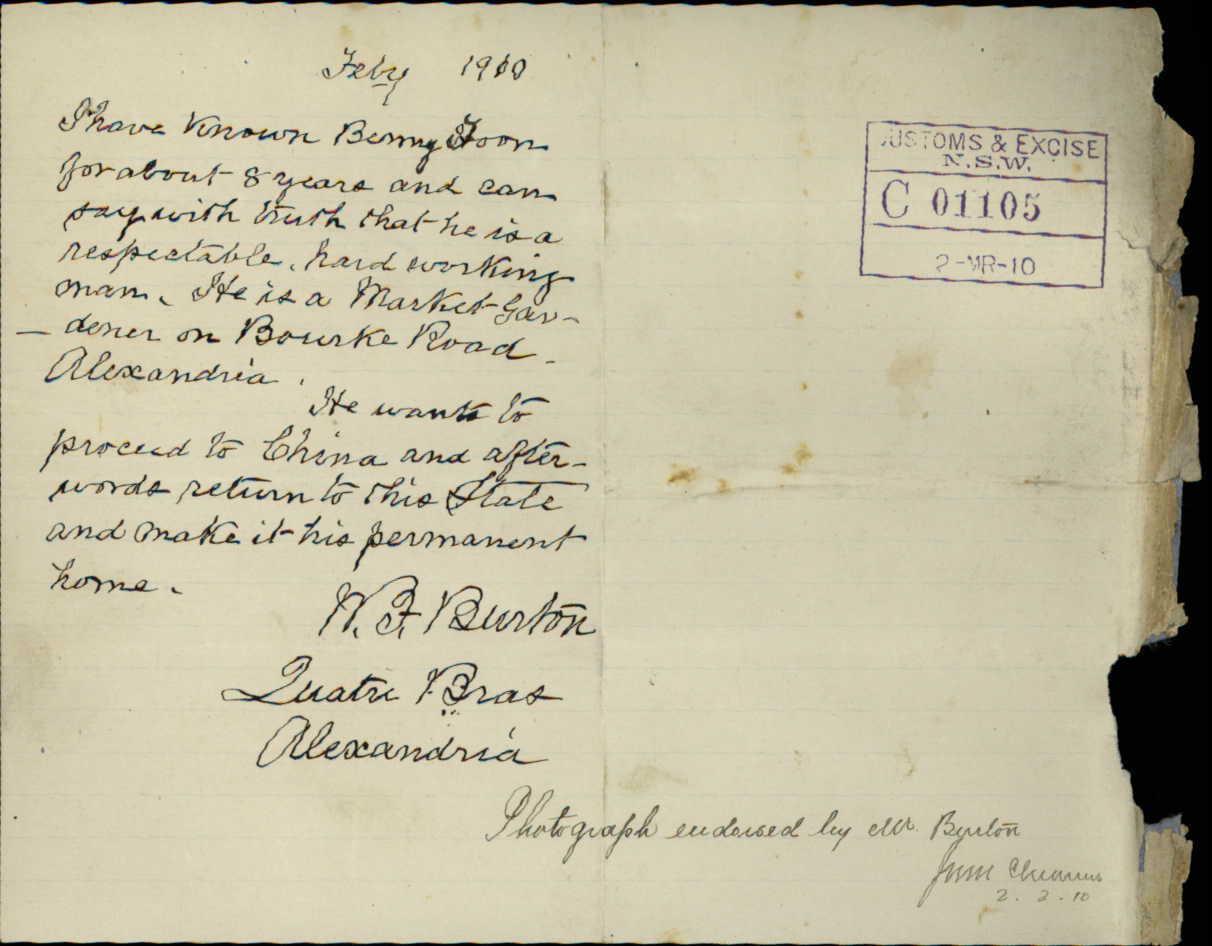 Feby 1910
I have known Benny Foon
for about 8 years and can
say with truth that he is a
respectable, hard working
man. He is a Market Gar-
- dener on Bourke Road
Alexandria.
He wants to
proceed to China and after-
words return to this State
and make it his permanent
home.
W. F. Burton
Quatre Bras
Alexandria
CUSTOMS & EXCISE
N.S.W.
C 01105
2-MR-10
Photograph endorsed by Mr. Burton